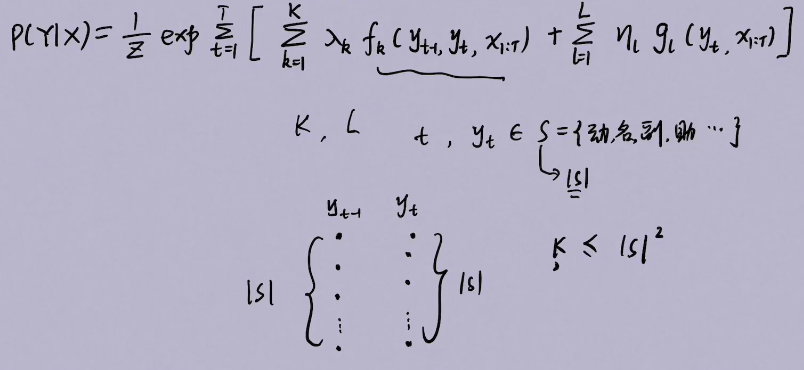 P(Y|X) = 1/Z exp Σ_{t=1}^{T} [ Σ_{k=1}^{K} λ_k f_k(y_{t-1}, y_t, x_{1:T}) + Σ_{l=1}^{L} η_l g_l(y_t, x_{1:T}) ]
K, L t, y_t ∈ S = {动,名,副,助 …}
→ |S|
y_{t-1} y_t
K ≤ |S|²
|S| { } |S|